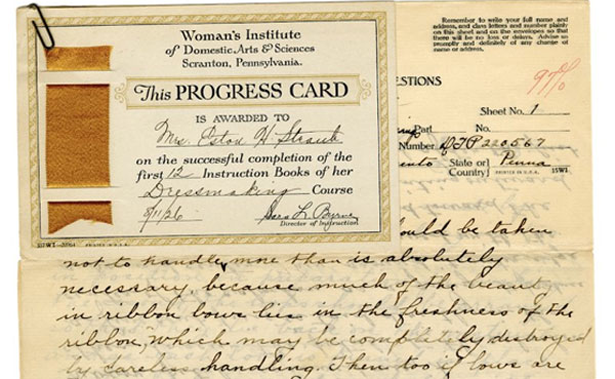 Woman's Institute
of Domestic Arts & Sciences
Scranton, Pennsylvania.
This PROGRESS CARD
IS AWARDED TO
Mrs. Eston H Straub
on the successful completion of the
first 12 Instruction Books of her
Dressmaking Course
8/11/26
Director of Instruction
PRINTED IN U.S.A.
Remember to write your full name and
address, and class letters and number plainly
on this sheet and on the envelopes so that
there will be no loss or delays. Advise us
promptly and definitely of any change of
name or address.
ESTIONS
97%
Sheet No. 1
Part No.
Number DTP 220567
State or Penna
Country
PRINTED IN U.S.A.
ould be taken
not to handle more than is absolutely
necessary, because much of the beauty
in ribbon bows lies in the freshness of the
ribbon, which may be completely destroyed
by careless handling. Then too if bows are